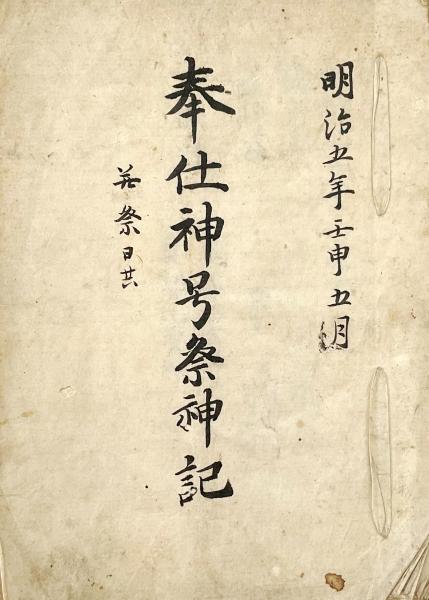 明治五年壬申五月
奉仕神号祭神記
并祭日共